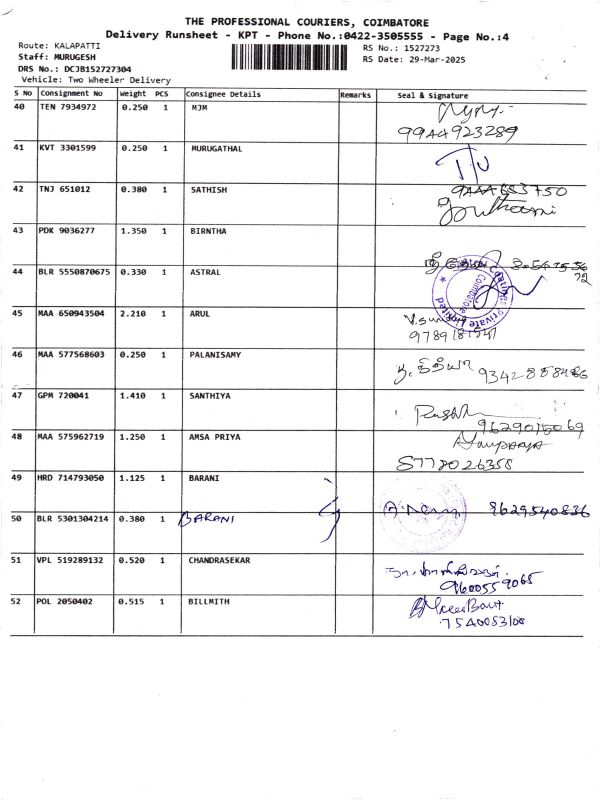 THE PROFESSIONAL COURIERS, COIMBATORE
Delivery Runsheet - KPT - Phone No.:0422-3505555 - Page No.:4
Route: KALAPATTI
Staff: MURUGESH
DRS No.: DCJB152727304
Vehicle: Two Wheeler Delivery
RS No.: 1527273
RS Date: 29-Mar-2025
S No Consignment No Weight PCS Consignee Details Remarks Seal & Signature
40 TEN 7934972 0.250 1 MJM
9944923289
41 KVT 3301599 0.250 1 MURUGATHAL
42 TNJ 651012 0.380 1 SATHISH
43 PDK 9036277 1.350 1 BIRNTHA
44 BLR 5550870675 0.330 1 ASTRAL
45 MAA 650943504 2.210 1 ARUL
46 MAA 577568603 0.250 1 PALANISAMY
47 GPM 720041 1.410 1 SANTHIYA
9629015069
48 MAA 575962719 1.250 1 AMSA PRIYA
8778026358
49 HRD 714793050 1.125 1 BARANI
50 BLR 5301304214 0.380 1 BARANI
8629540836
51 VPL 519289132 0.520 1 CHANDRASEKAR
9600559065
52 POL 2050402 0.515 1 BILLMITH
7540053108